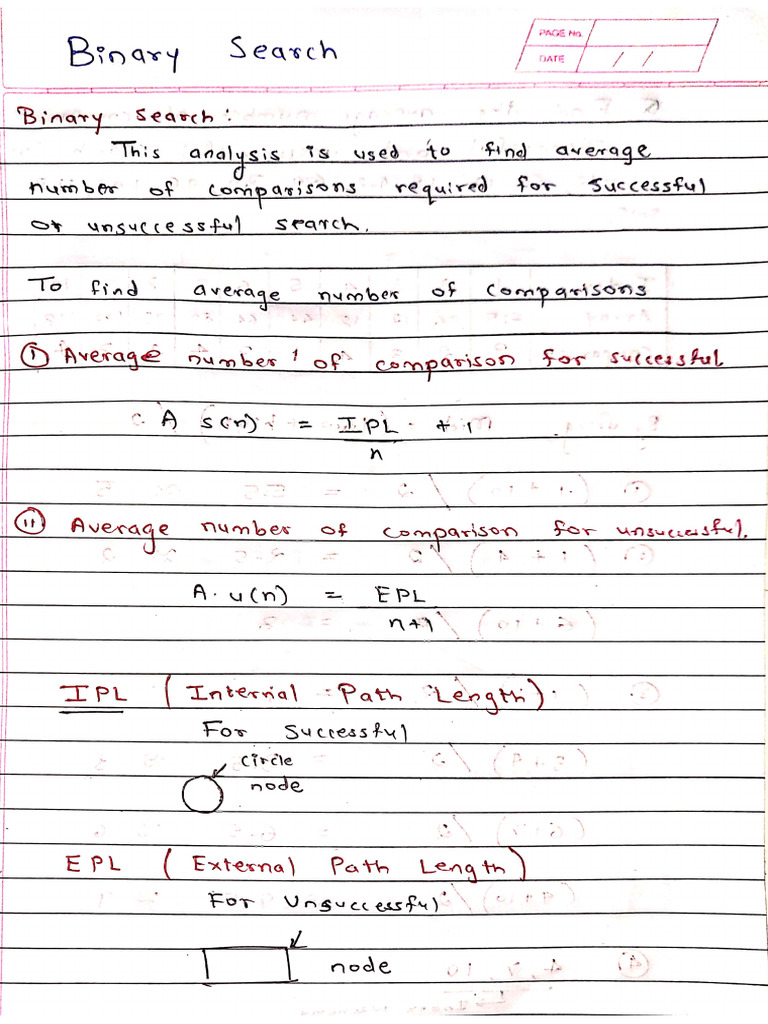 Binary Search
PAGE No.
DATE / /
Binary Search:
This analysis is used to find average
number of comparisons required for successful
or unsuccessful search.
To find average number of comparisons
(i) Average number of comparison for successful
A s(n) = IPL + 1
n
(ii) Average number of comparison for unsuccessful.
A. u(n) = EPL
n+1
IPL (Internal Path Length).
For Successful
circle
node
EPL (External Path Length)
For Unsuccessful
node